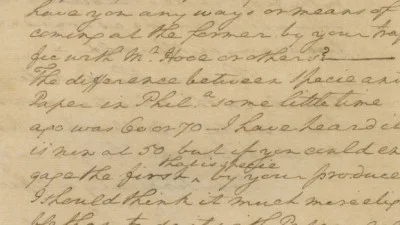 have you any ways or means of
coming at the former by your traf
fic with Mr. Hooe or others?
The difference between Specie and
Paper in Phila. some little time
ago was 60 or 70 — I have heard it
is now at 50, but if you could en
gage the first ^ that is specie by your produce
I should think it much more elig